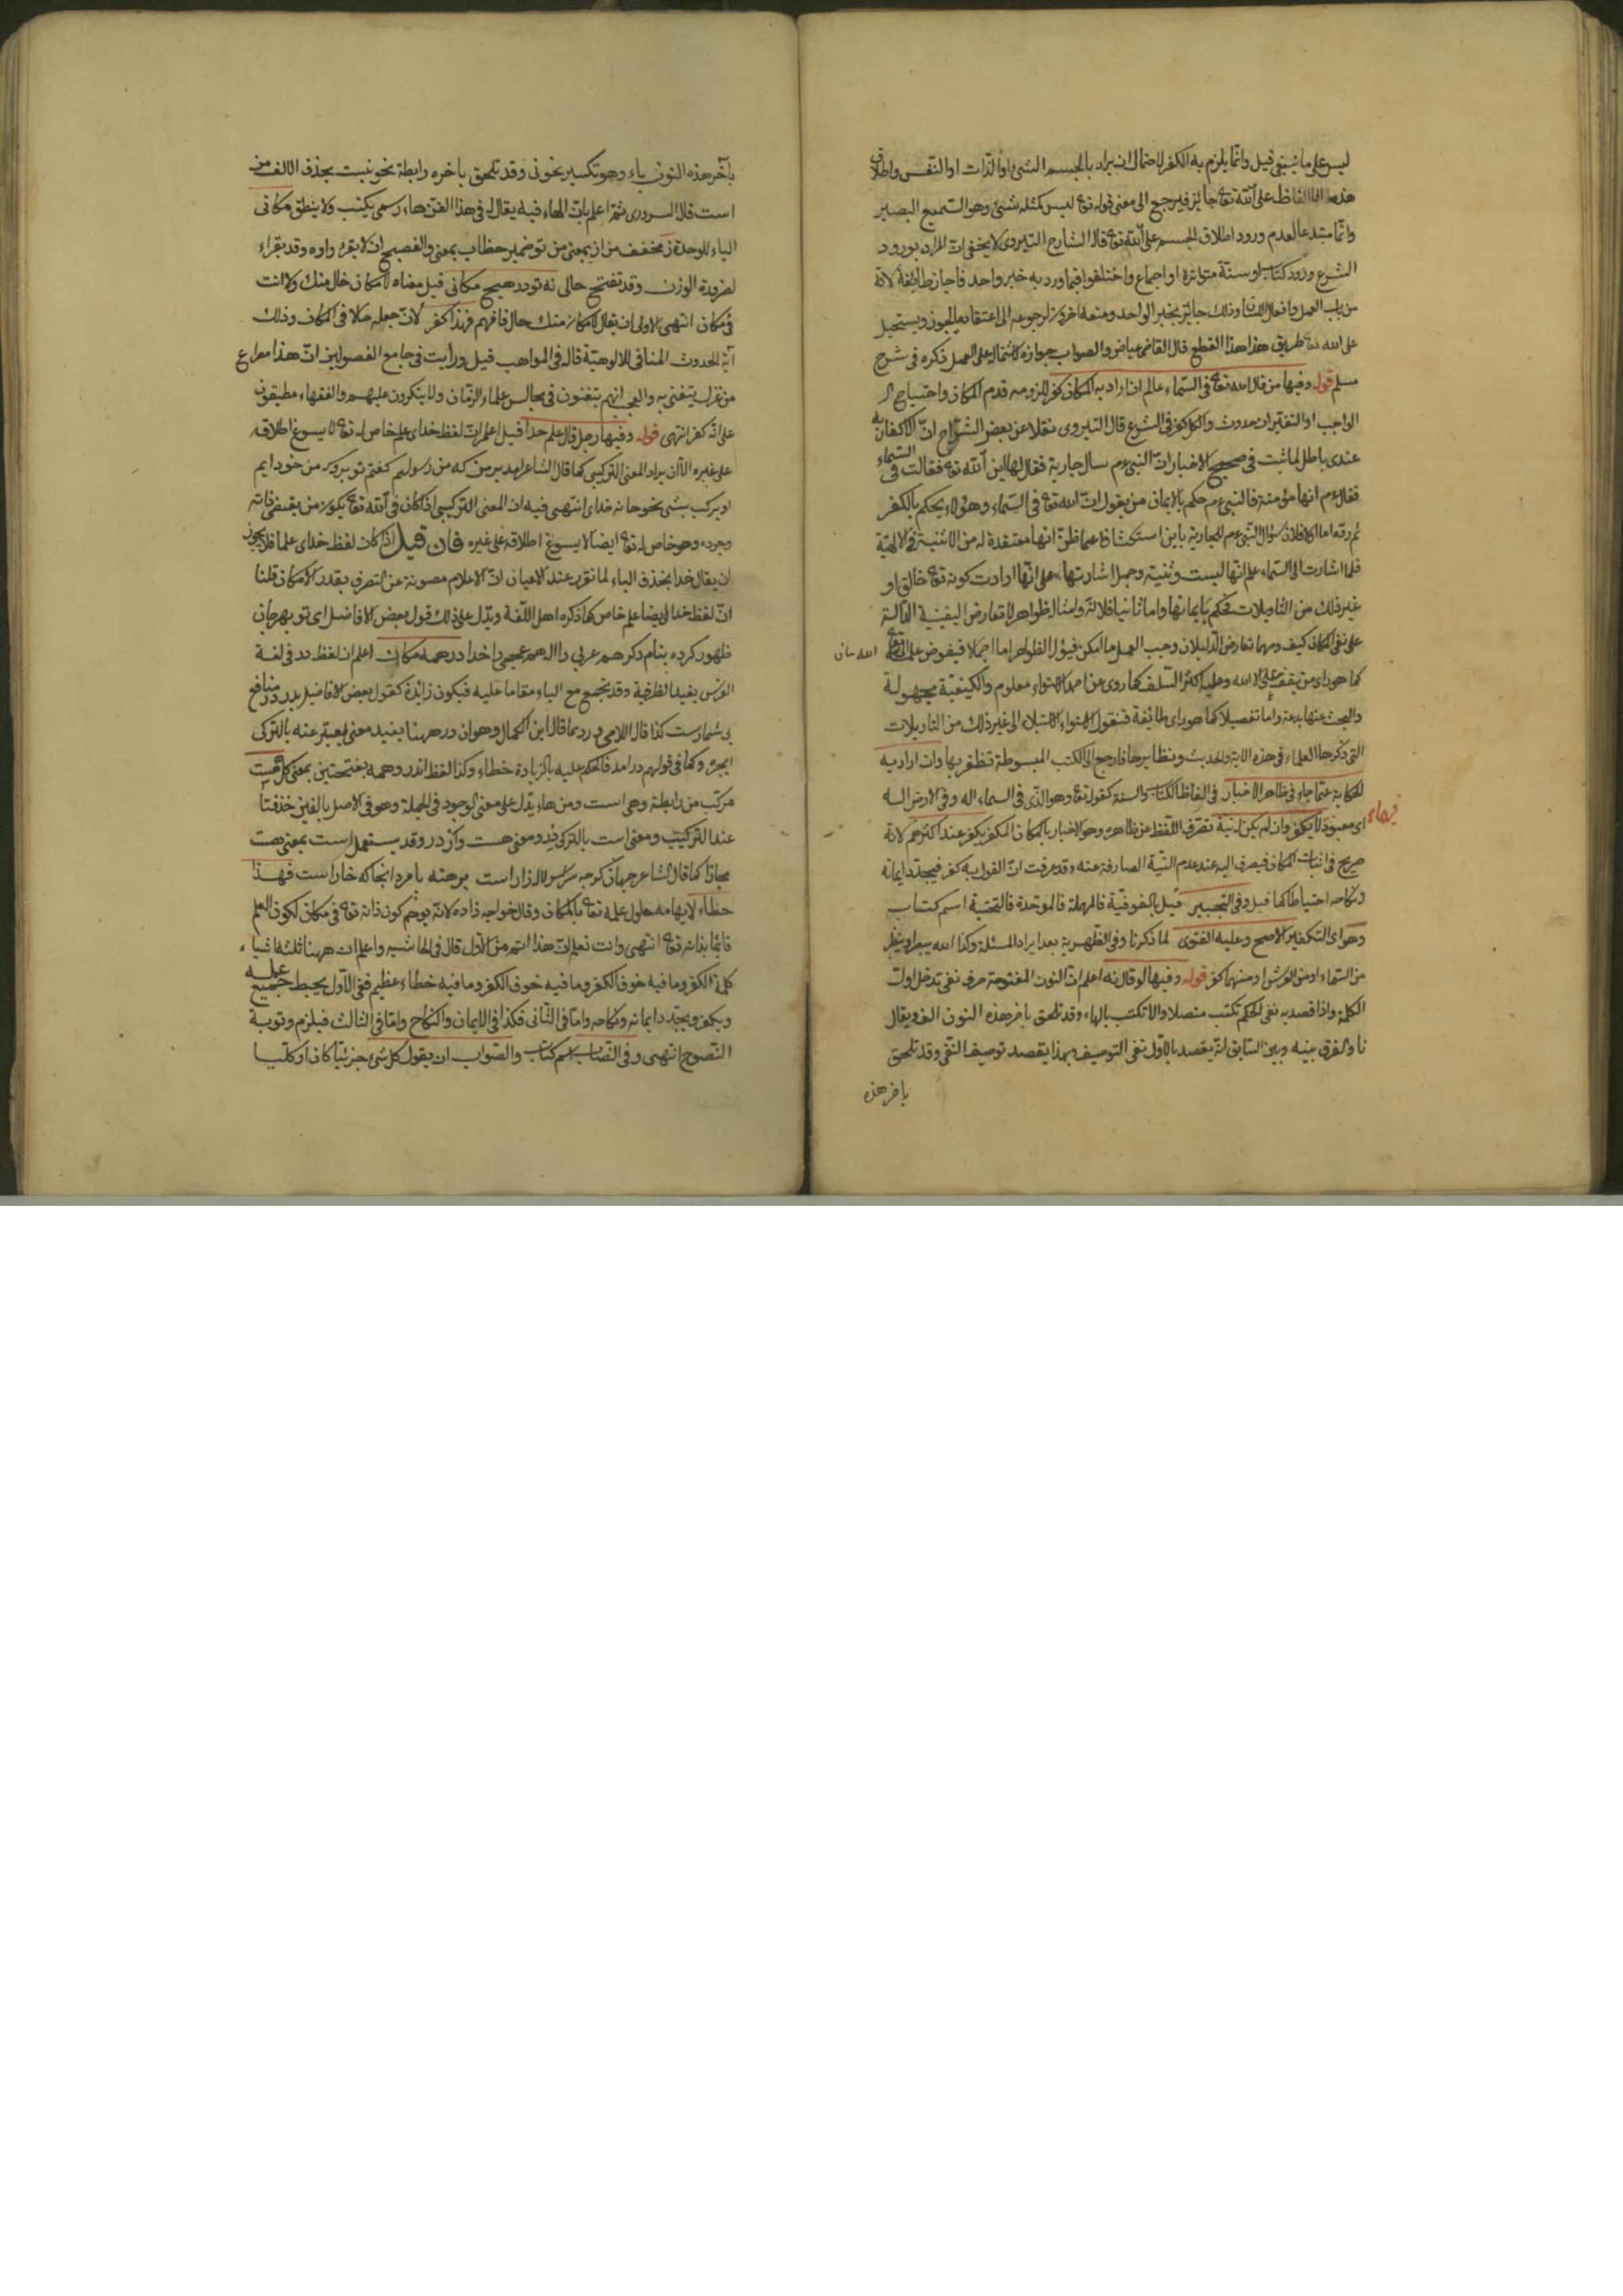 ليس على ما ينبغي قيل وانما يلزم به الكفر لاحتمال ان يراد بالجسم الشئ او الذات او النفس واطلاق
هذه الالفاظ على الله تع جايز فيرجع الى معنى قوله تع ليس كمثله شئ وهو السميع البصير
وانما مبتدعا لعدم ورود اطلاق الجسم على الله تع قال الشارح التيروى لا يخفى ان المراد بورود
الشرع ورود كتاب او سنة متواترة او اجماع واختلفوا فيما ورد به خبر واحد فاجاز طايفة لانه
من باب العمل وافعال اللسان وذلك جائز بخبر الواحد ومنعه اخرون لرجوعه الى اعتقاد ما يجوز ويستحيل
على الله تع طريق هذا القطع قال القاضى عياض والصواب جوازه لاشتماله على العمل ذكره فى شرح
مسلم قوله وفيها من قال الله تع فى السماء عالم ان اراد به المكان كفر للزومه قدم المكان واحتياج
الواجب او التغير ان حدوث والكل كفر فى الشرع قال التيروى نقلا عن بعض الشراح ان الاكفار به
عندى باطل لما ثبت فى صحيح الاخبار ان النبى ءم سال جارية فقال لها اين الله تع فقالت فى السماء
فقال ءم انها مؤمنة فالنبى ءم حكم بالايمان من يقول ان الله تع فى السماء وهؤلاء يحكم بالكفر
ثم رده اما اولا فلان سؤال النبى ءم للجارية باين استكشافا عما ظن انها معتقدة له من الاثنية فى الالهية
فلما اشارت الى السماء علم انها ليست وثنية وحمل اشارتها على انها ارادت كونه تع خالق او
غير ذلك من التاويلات فحكم بايمانها واما ثانيا فلانه وامثاله ظواهر لا تعارض اليقينية الدالة
على نفى المكان كيف ومهما تعارض الدليلان وجب العمل ما امكن فيؤول الظواهر اما اجمالا فيفوض علمه الى الله
كما هو راى من يقف على الا الله وعليه اكثر السلف كما روى عن احمد الاستواء معلوم والكيفية مجهولة
والبحث عنها بدعة واما تفصيلا كما هو راى طائفة فنقول الاستواء الاستيلاء الى غير ذلك من التاويلات
التى ذكرها العلماء فى هذه الآية والحديث ونظايرها فارجع الى الكتب المبسوطة تظفر بها وان اراد به
الحكاية عما جاء فى ظاهر الاخبار فى الفاظ الكتاب والسنة كقوله تع وهو الذى فى السماء اله وفى الارض اله
اى معبود لا يكفر وان لم يكن له نية تصرف اللفظ عن ظاهره وهو الاخبار بالمكان المكفر يكفر عند اكثرهم لانه
صريح فى اثبات المكان فيصرف اليه عند عدم النية الصارفة عنه وقد عرفت ان القول به كفر فيجدد ايمانه
ونكاحه احتياطا كما قيل وفى التحبير قيل بالفوقية فالمهملة فالموحدة فالتحتية اسم كتاب
وهو اى التكفير الاصح وعليه الفتوى لما ذكرنا وفى الظهيرية بعد ايراد المسئلة وكذا الله يبصر او ينظر
من السماء او من العرش او منهما كفر قوله وفيها لو قال نه اعلم ان النون المفتوحة حرف نفى تدخل اول
الكلمة واذا قصد به نفى الحكم تكتب متصلا والا تكتب بالهاء وقد تلحق باخر هذه النون الف ويقال
نا والفرق بينه وبين السابق انه يقصد بالاول نفى التوصيف وبهذا يقصد توصيف النفى وقد تلحق
باخر هذه
بآخر هذه النون ياء وهو تكسير نحو نى وقد تلحق باخره رابطة نحو نيست بحذف الالف من
است قال السرورى ثم اعلم بان الهاء فيه يقال له فى هذا الفن هاء رسمى يكتب ولا ينطق مكانى
الياء للوحدة ز مخفف من از بمعنى من تو ضمير خطاب بمعنى والفصيح ان لا يقرء واوه وقد يقراء
لضرورة الوزن وقد تفتح خالى نه تو در هيچ مكانى قيل معناه لا مكان خال منك ولا انت
فى مكان انتهى الاولى ان يقال لا مكان منك خال فافهم فهذا كفر لان جعله حالا فى المكان وذلك
آية الحدوث المنافى للالوهية قاله فى المواهب قيل ورايت فى جامع الفصولين ان هذا مصراع
من غزل يتغنى به والعجب انهم يتغنون فى مجالس علماء الزمان ولا ينكرون عليهم والفقهاء مطبقون
على انه كفر انتهى قوله وفيها رجل قال علم خدا قيل اعلم ان لفظ خداى علم خاص له تع لا يسوغ اطلاقه
على غيره الا ان يراد المعنى التركيبى كما قال الشاعر امد بر من كه من رسولم گفتم تو برو كه من خودايم
او يركب بشئ نحو خانه خداى انتهى فيه ان المعنى التركيبى اذا كان فى الله تع يكون من يقتضى ذاته
وجوده وهو خاص له تع ايضا لا يسوغ اطلاقه على غيره فان قيل اذا كان لفظ خداى علما فلا يجوز
ان يقال خدا بحذف الياء لما تقرر عند الاعيان ان الاعلام مصونة عن التصرف بقدر الامكان قلنا
ان لفظ خدا ايضا علم خاص كما ذكره اهل اللغة ويدل على ذلك قول بعض الافاضل اى تو بهر جان
ظهور كرده بنام دكر هم عربى را اله هم عجمى را خدا در همه مكان اعلم ان لفظ در فى لغة
الفرس يفيد الظرفية وقد تجمع مع الباء مقاما عليه فيكون زائدة كقول بعض الافاضل بدر در منافع
بى شمارست كذا قال اللامعى ورد بما قال ابن الكمال وهو ان در ههنا يفيد معنى يعبر عنه بالتركى
ايجره وكما فى قولهم درامد فالحكم عليه بالزيادة خطاء وكذا لفظ اندر وهمه بفتحتين بمعنى كل هست
مركب من رابطة وهى است ومن هاء يدل على معنى الوجود فى الجملة وهو فى الاصل بالفين حذفتا
عند التركيب ومعنى است بالتركى در ومعنى هست واردر وقد يستعمل است بمعنى هست
مجازا كما قال الشاعر جهان كرچه سراسر لاله زار است برهنه پا مرو انجا كه خار است فهذا
خطاء لايهامه حلول علمه تع بالمكان وقال خواجه زاده لانه يوهم كون ذاته تع فى مكان لكون العلم
قائما بذاته تع انتهى وانت تعلم ان هذا اتم من الاول قال فى الحاشية واعلم ان ههنا ثلثة اشياء
كلمة الكفر وما فيه خوف الكفر وما فيه خطاء عظيم ففى الاول يحبط جميع عمله
ويكفر ويجدد ايمانه ونكاحه واما فى الثانى فكذا فى الايمان والنكاح واما فى الثالث فيلزم توبة
النصوح انتهى وفى النصاب اسم كتاب والصواب ان يقول كل شئ جزئيا كان او كليا